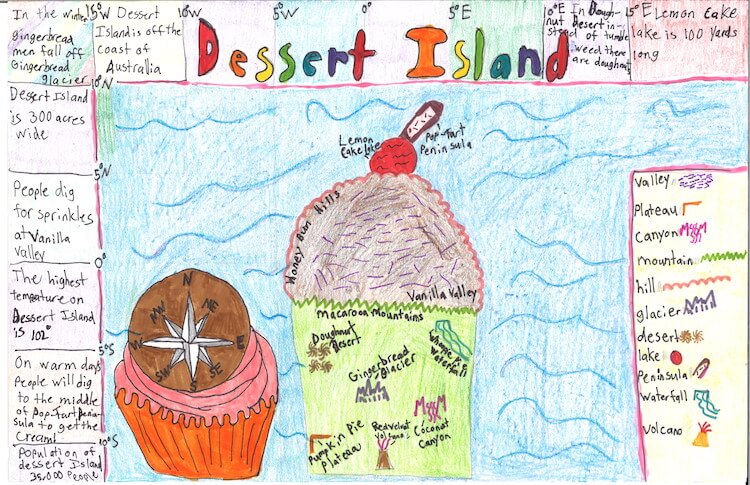 In the winter
gingerbread
men fall off
Gingerbread
glacier
15°W Dessert
Island is off the
coast of
Australlia
10°W
5°W
0°
5°E
10°E In Dough-
nut Desert in-
stead of tumble
weed there
are doughnuts
15°E Lemon Cake
lake is 100 yards
long
Dessert Island
10°N
5°N
0°
5°S
10°S
Dessert Island
is 300 acres
wide
People dig
for sprinkles
at Vanilla
Valley
The highest
temperature on
Dessert Island
is 102°
On warm days
People will dig
to the middle
of Pop-Tart Penin-
sula to get the
Cream!
Population of
dessert Island
35,000 People
N
NE
E
SE
S
SW
W
NW
Lemon
Cake lake
Pop-Tart
Peninsula
Honey Bun Hills
Vanilla Valley
Macaroon Mountains
Doughnut
Desert
Whoopie Pie
Waterfall
Gingerbread
Glacier
Pumpkin Pie
Plateau
Red Velvet
Volcano
Coconut
Canyon
Valley
Plateau
Canyon
mountain
hill
glacier
desert
lake
Peninsula
waterfall
Volcano